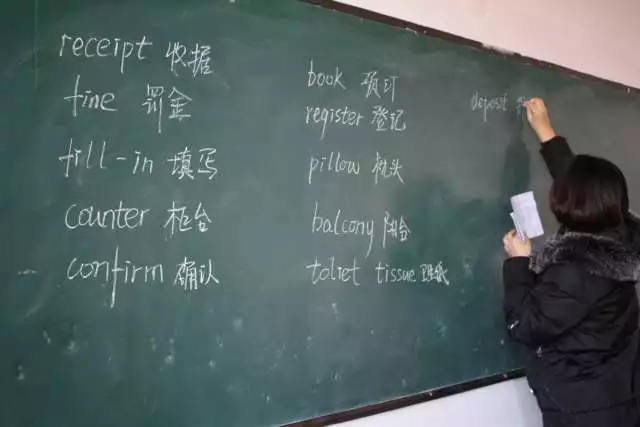 receipt 收据
fine 罚金
fill-in 填写
counter 柜台
confirm 确认
book 预订
register 登记
pillow 枕头
balcony 阳台
toliet tissue
deposit